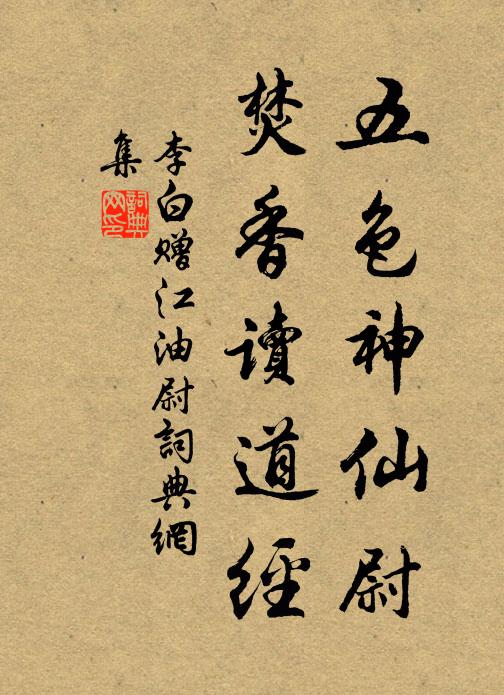 五色神仙尉
焚香讀道經
李白赠江油尉詞典網
集
詞典
网印